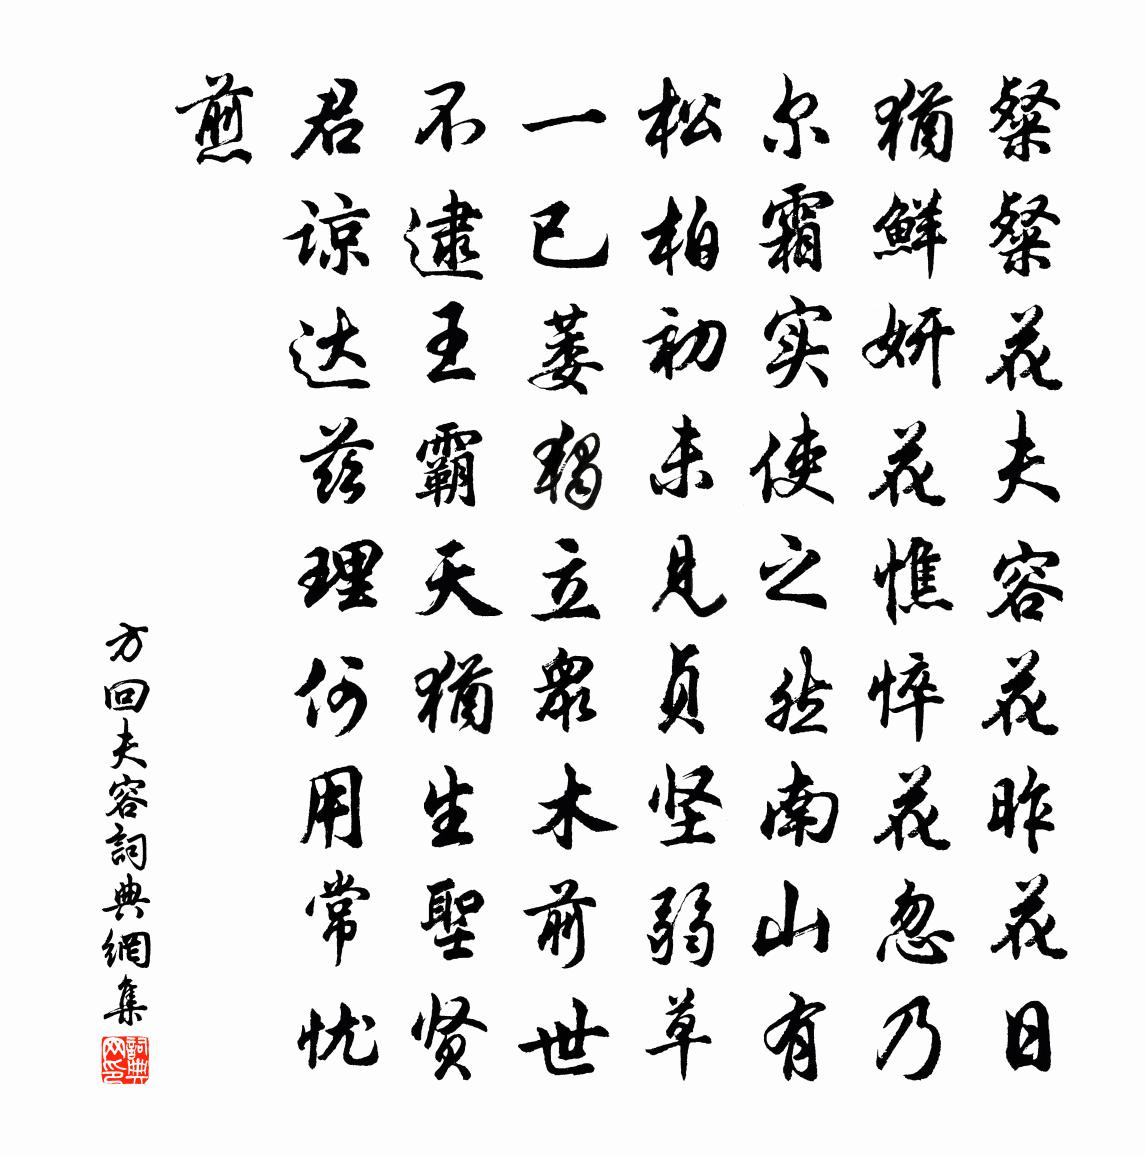 粲粲花夫容花昨花日
犹鲜妍花憔悴花忽乃
尔霜实使之然南山有
松柏初未见贞坚弱草
一已萎独立众木前世
不逮王霸天犹生圣贤
君谅达兹理何用常忧
煎
方回夫容詞典網集
詞典网印